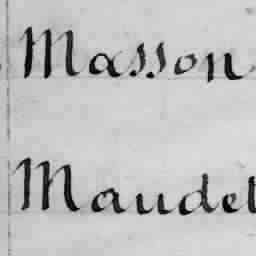 Masson
Maudet